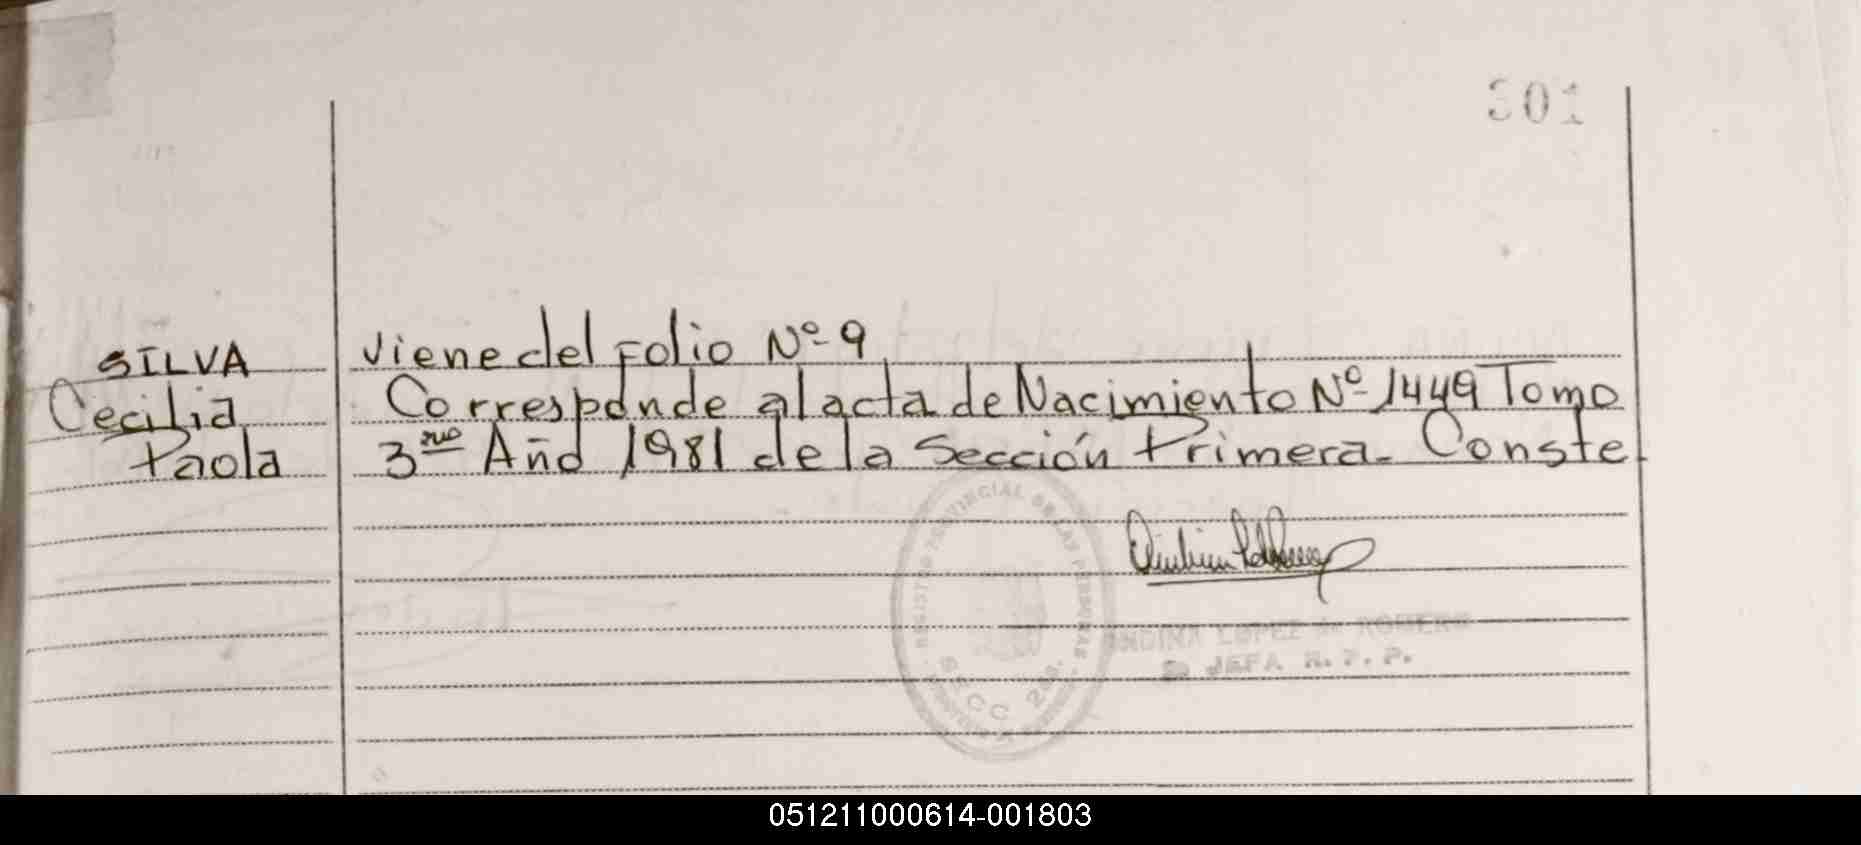 301
SILVA
Cecilia
Paola
viene del Folio Nº 9
Corresponde al acta de Nacimiento Nº 1449 Tomo
3ro Año 1981 de la Sección Primera. Conste
REGISTRO PROVINCIAL DE LAS PERSONAS
SECC
LOPEZ de ROMERO
JEFA R. P. P.
051211000614-001803